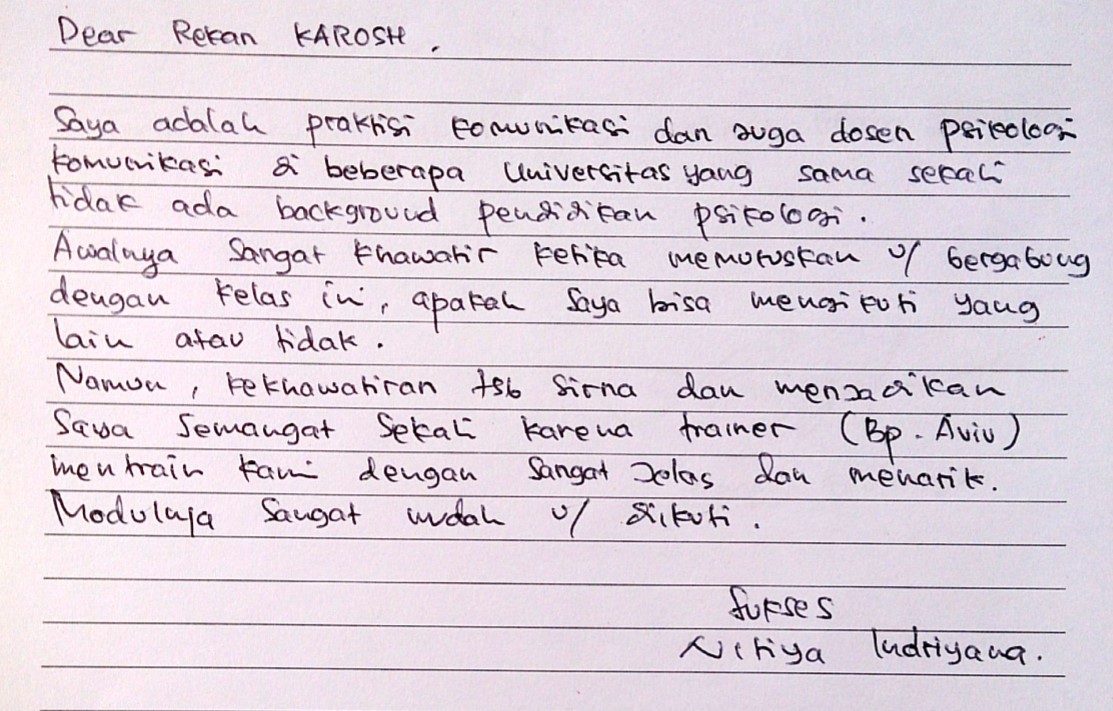 Dear Rekan KAROSH,
Saya adalah praktisi komunikasi dan juga dosen psikologi
komunikasi di beberapa Universitas yang sama sekali
tidak ada background pendidikan psikologi.
Awalnya Sangat khawatir ketika memutuskan u/ bergabung
dengan kelas ini, apakah Saya bisa mengikuti yang
lain atau tidak.
Namun, kekhawatiran tsb Sirna dan menjadikan
Saya Semangat Sekali karena trainer (Bp. Aviv)
mentrain kami dengan Sangat Jelas dan menarik.
Modulnya Sangat mudah u/ diikuti.
Sukses
Indriyana.